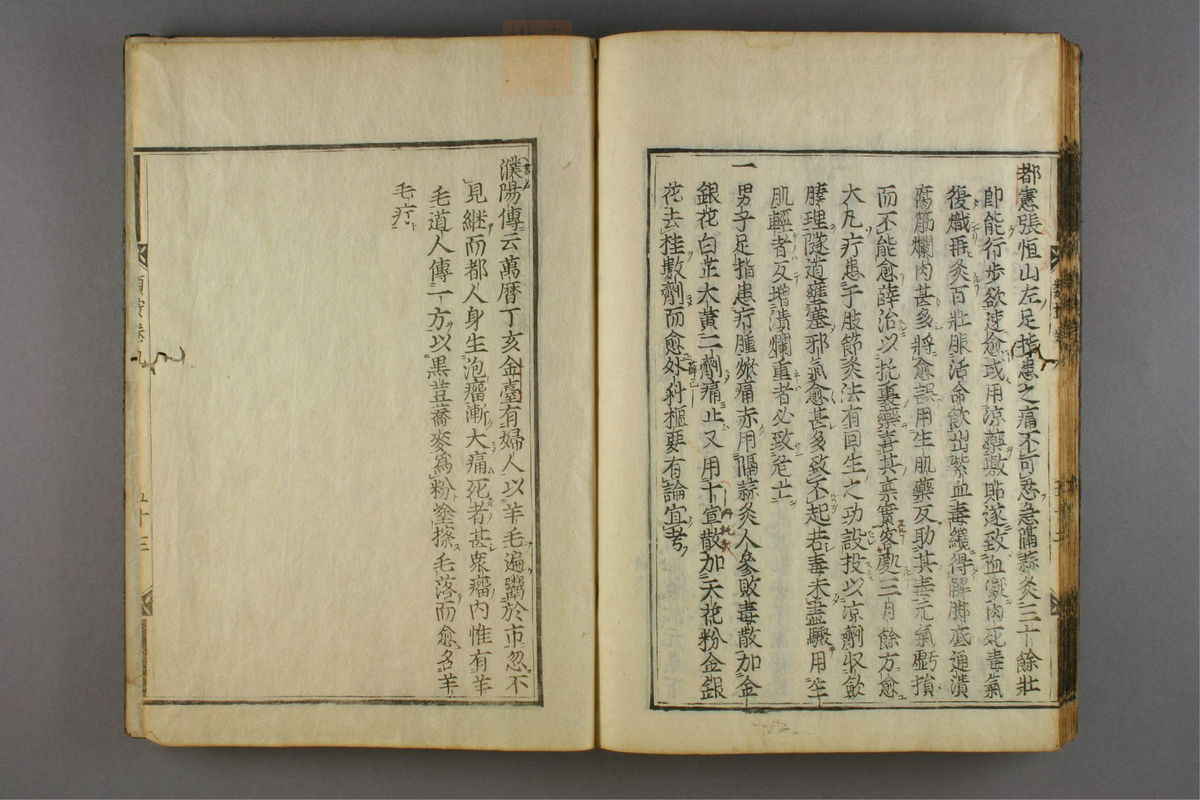 都憲張恒山左足指患之痛不可忍急隔蒜灸三十餘壯
即能行步欲速愈或用涼藥敷貼遂致血凝肉死毒氣
復熾再灸百壯服活命飲出紫血毒纔得解脚底通潰
腐筋爛肉甚多將愈誤用生肌藥反助其毒元氣虧損
而不能愈薛治以托裏藥喜其稟實客處三月餘方愈
大凡疔患于肢節灸法有回生之功設投以涼劑收斂
腠理隧道壅塞邪氣愈甚多致不起若毒未盡驟用生
肌輕者反增潰爛重者必致危亡
一男子足指患疔腫焮痛赤用隔蒜灸人參敗毒散加金
銀花白芷大黃二劑痛止又用十宣散加天花粉金銀
花去桂數劑而愈外科樞要有論宜考
濮陽傳云萬曆丁亥金臺有婦人以羊毛遍鬻於市忽不
見繼而都人身生泡瘤漸大痛死者甚衆瘤内惟有羊
毛道人傳一方以黑荳蕎麥爲粉塗擦毛落而愈名羊
毛疔
五十三